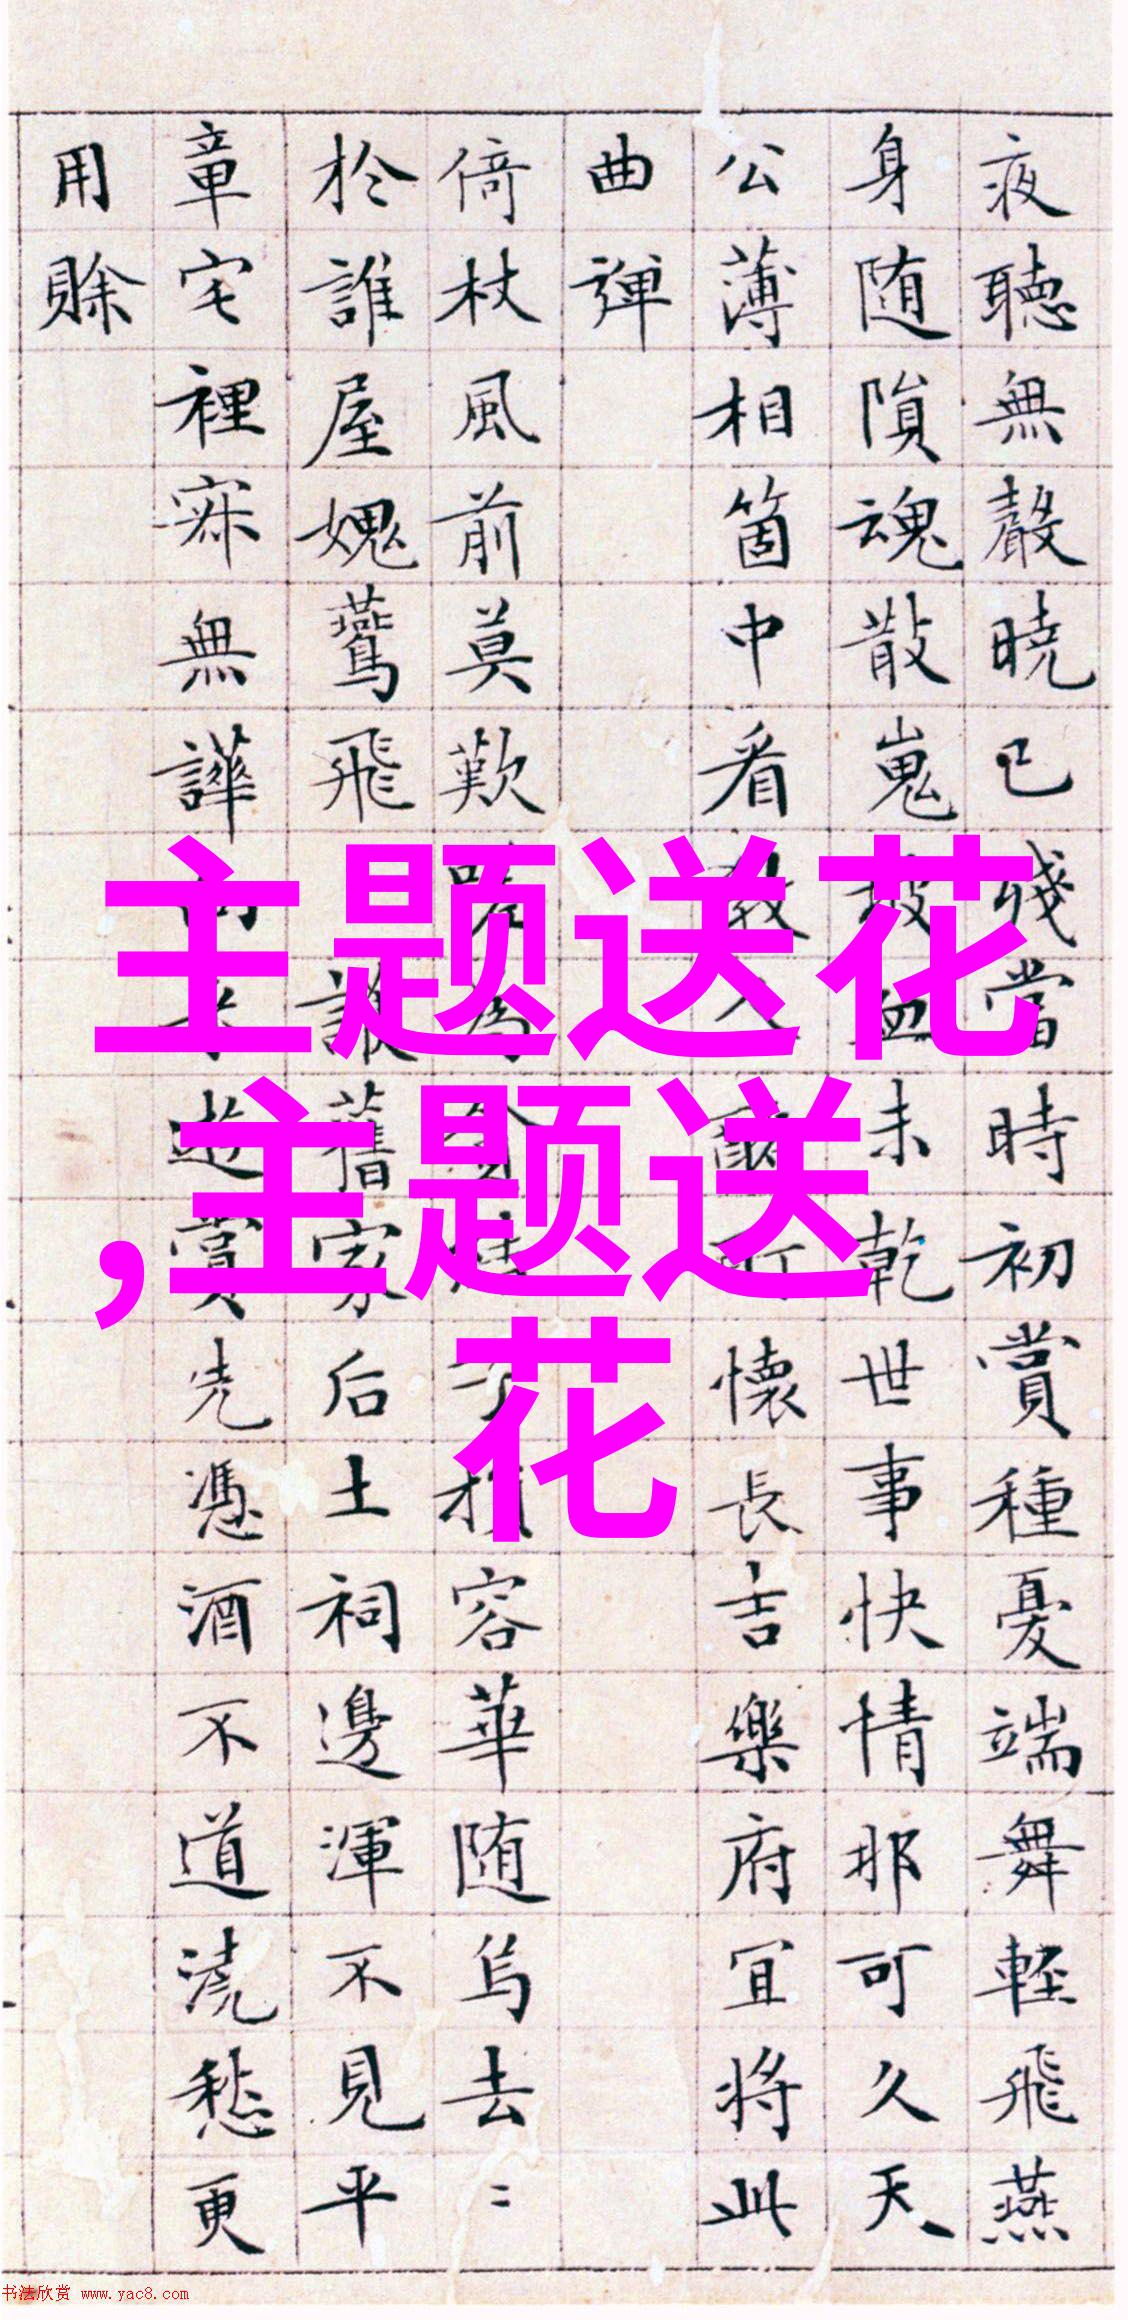 夜聽無聲曉已殘當時初賞種憂端舞輕飛燕
身随隕魂散嵬坡血未乾世事快情那可久天
公薄相箇中看教人酬可懷長吉樂府宜将此
曲彈
倚杖風前莫歎嗟為容華随烏去〻
於誰屋媿鷰飛舊家后土祠邊渾不見平
章宅裡寐無譁遊賞先憑酒不道澆愁更
用賒
主题送花
,主题送
花
书法欣赏 www.yac8.com